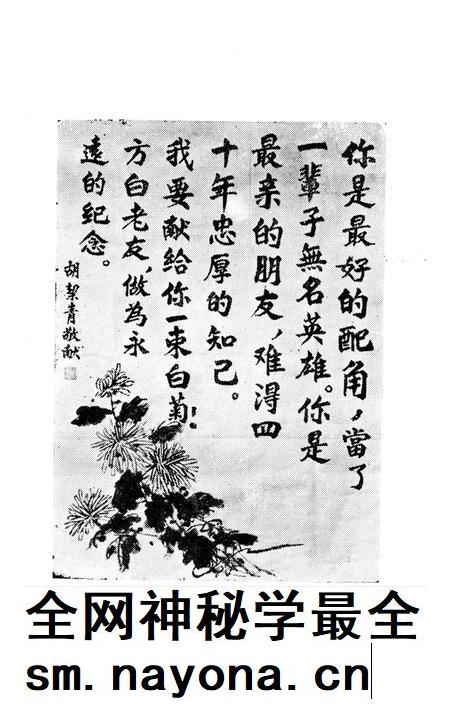 你是最好的配角，當了
一輩子無名英雄。你是
最亲的朋友，难得四
十年忠厚的知己。
我要献给你一束白菊！
方白老友，做為永
遠的纪念。
胡絜青敬献
全网神秘学最全
sm.nayona.cn